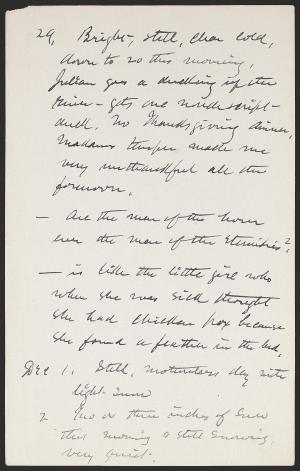 29, Bright, still, clear cold,
down to 20 this morning,
Julian goes a ducking up the
river - gets one nondescript
duck. No Thanksgiving dinner,
Madams temper made me
very unthankful all the
forenoon.
— Are the men of the hour
ever the men of the Eternities?
— is like the little girl who
when she was sick thought
she had chicken pox because
she found a feather in the bed.
Dec 1. Still, motionless day with
light snow
2 Two or three inches of snow
this morning & still snowing,
very quiet.